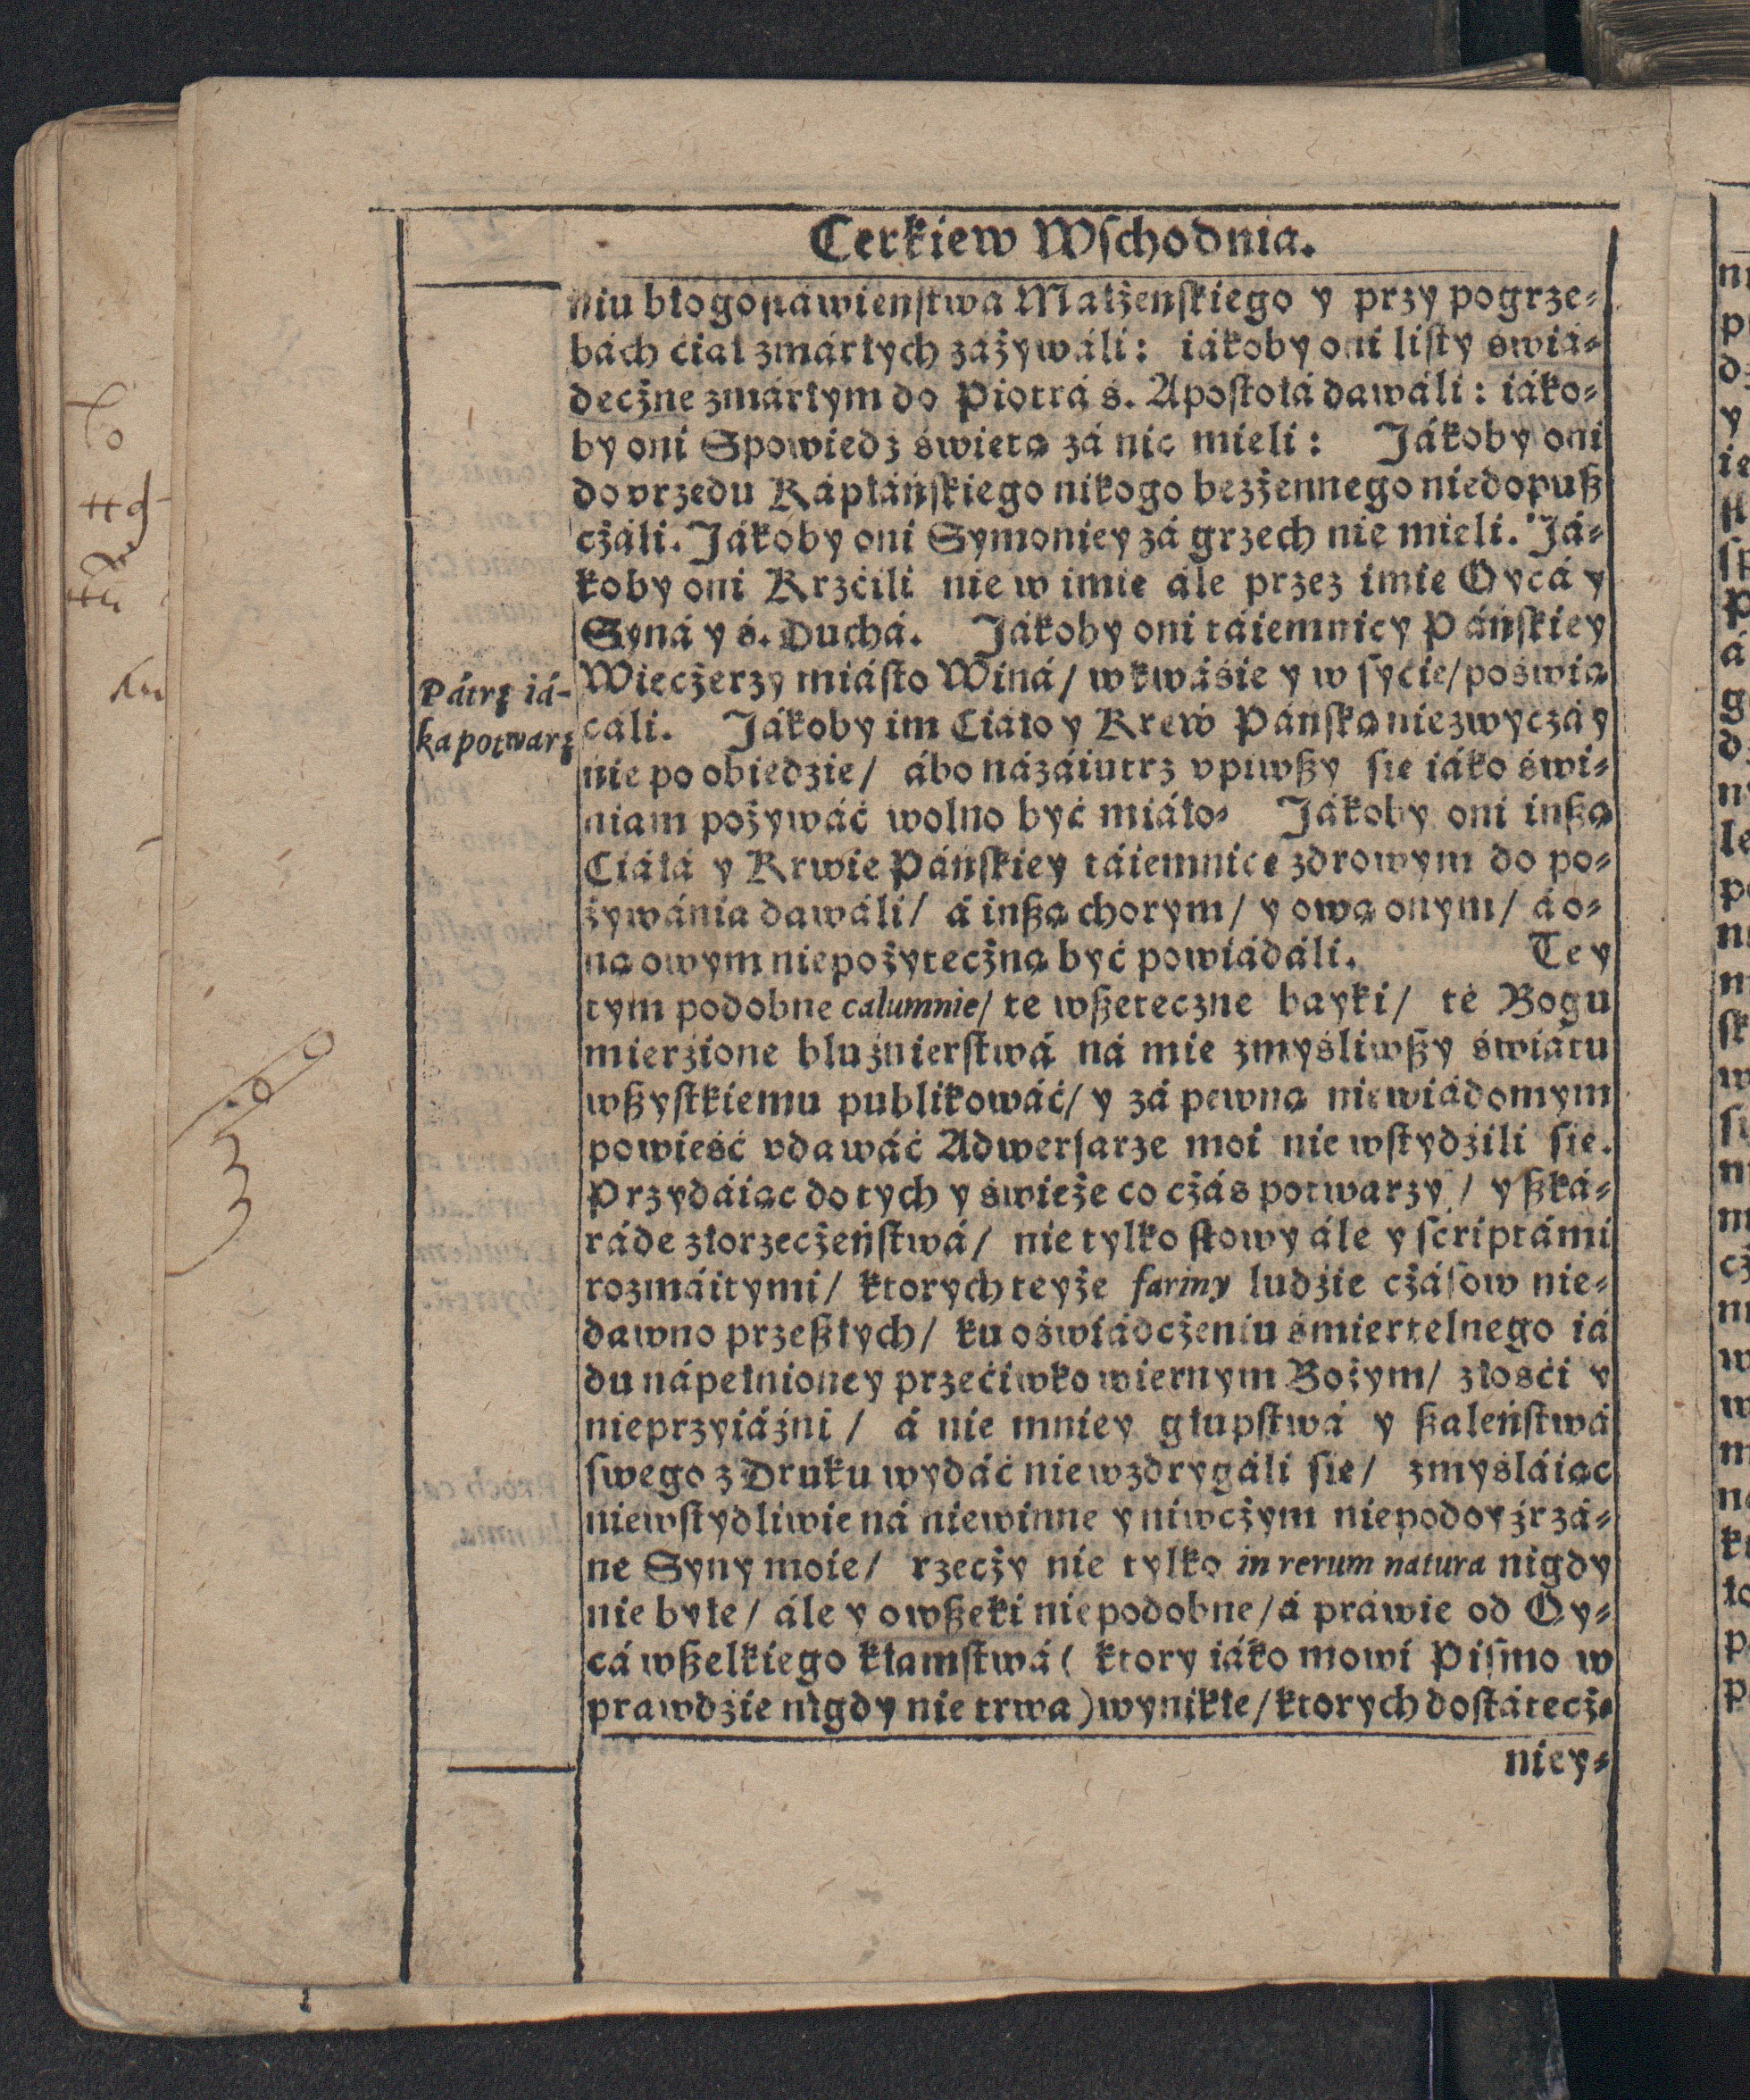 Cerkiew Wſchodnia.
niu błogosławienſtwa Małżenſkiego y przy pogrze⸗
bách ćiał zmárłych záżywáli: iákoby oni liſty świá⸗
decżne zmárłym do Piotrá ś. Apoſtołá dawáli: iáko⸗
by oni Spowiedz świetą zá nic mieli: Jákoby oni
do vrzedu Kápłáńſkiego nikogo bezżennego niedopuß
cżáli. Jákoby oni Symoniey zá grzech nie mieli. Já⸗
koby oni Krzćili nie w imie ále przez imie Oycá y
Syná y ś. Duchá. Jákoby oni táiemnicy Páńſkiey
Wiecżerzy miáſto Winá/ w kwáśie y w ſyćie/ poświą
cáli. Jákoby im Ciáło y Krew Páńſką niezwyczáy
nie po obiedzie/ ábo názáiutrz vpiwßy ſie iáko świ⸗
niam pożywáć wolno być miáło⸗ Jákoby oni inßą
Ciáłá y Krwie Páńſkiey táiemnice zdrowym do po⸗
żywánia dawáli/ á inßą chorym/ y ową onym/ á o⸗
ną owym niepożytecżną być powiádáli. Te y
tym podobne calumnie/ te wßeteczne bayki/ te Bogu
mierżione bluźnierſtwá ná mie zmyśliwßy świátu
wßyſtkiemu publikowáć/ y zá pewną niewiádomym
powieść vdawáć Adwerſarze moi nie wſtydźili ſie.
Przydáiąc do tych y świeże co cżás potwarzy/ y ßká⸗
ráde złorzecżeńſtwá/ nie tylko ſłowy ále y ſcriptámi
rozmáitymi/ ktorych teyże fariny ludźie cżáſow nie⸗
dawno przeßłych/ ku oświádcżeniu śmiertelnego iá
du nápełnioney przećiwko wiernym Bożym/ złośći y
nieprzyiáźni/ á nie mniey głupſtwá y ßaleńſtwá
ſwego z Druku wydáć niewzdrygáli ſie/ zmyśláiąc
niewſtydliwie ná niewinne y niwcżym niepodoyźrzá⸗
ne Syny moie/ rzecży nie tylko in rerum natura nigdy
nie byłe/ ále y owßeki niepodobne/ á práwie od Oy⸗
cá wßelkiego kłamſtwá ( ktory iáko mowi Piſmo w
prawdźie nigdy nie trwa) wynikłe/ ktorych doſtátecż⸗
niey⸗
Pátrz iá-
ka potwarz